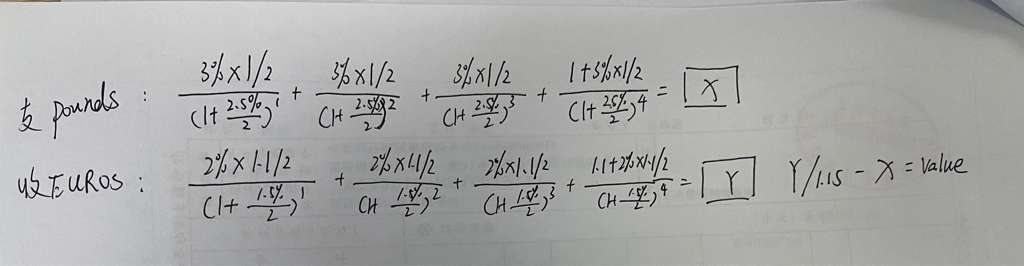 支 pounds : 3%×1/2 / (1+ 2.5%/2)^1 + 3%×1/2 / (1+ 2.5%/2)^2 + 3%×1/2 / (1+ 2.5%/2)^3 + 1+3%×1/2 / (1+ 2.5%/2)^4 = X
收EUROS : 2%×1.1/2 / (1+ 1.5%/2)^1 + 2%×1.1/2 / (1+ 1.5%/2)^2 + 2%×1.1/2 / (1+ 1.5%/2)^3 + 1.1+2%×1.1/2 / (1+ 1.5%/2)^4 = Y Y/1.15 - X = value